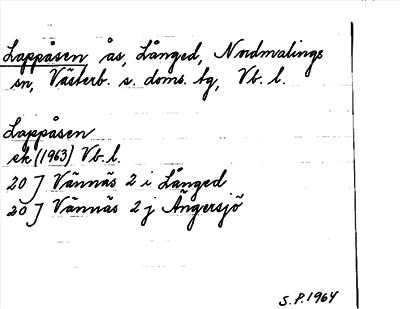 Lappåsen ås, Långed, Nordmalings
sn, Västerb. s. doms. tg, Vb. l.
Lappåsen
ek (1963) Vb. l.
20 J Vännäs 2 i Långed
20 J Vännäs 2 j Ängersjö
S.P. 1964